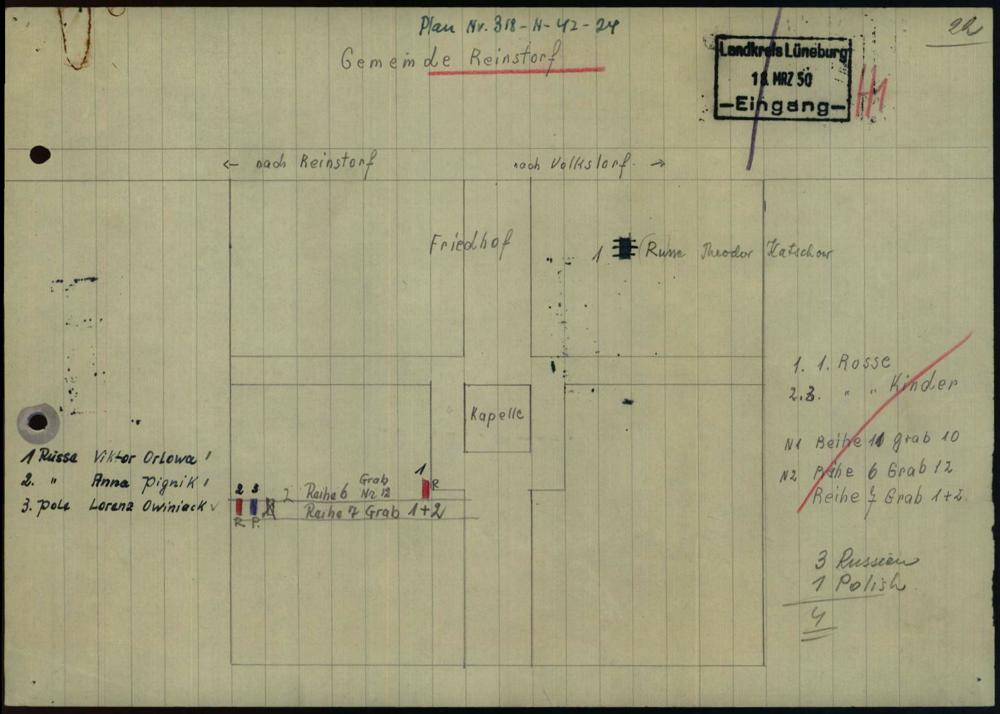 Plan Nr. 318-H-42-24
22
Gemeinde Reinstorf
Landkreis Lüneburg
18. MRZ 50
-Eingang-
H1
<- nach Reinstorf
nach Volkstorf ->
Friedhof
1 Russe Theodor Katschow
1. 1. Rosse
2.3. " " Kinder
Kapelle
N1 Reihe 11 grab 10
N2 Reihe 6 Grab 12
Reihe 7 Grab 1+2
1 Russe Viktor Orlowa
2. " Anna Pignik
3. Pole Lorenz Owiniack
1
R
2 3
R P.
Reihe 6 Grab Nr 12
Reihe 7 Grab 1+2
3 Russien
1 Polish
4